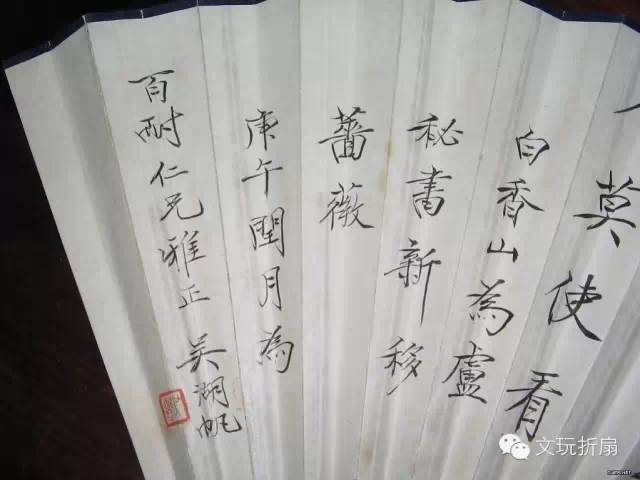 莫使看
白香山為盧
秘書新移
薔薇
庚午閏月為
百耐仁兄雅正 吳湖帆
文玩折扇